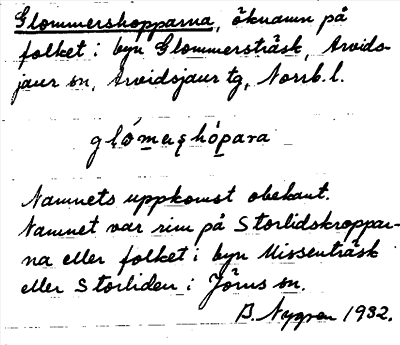 Glommershopparna, öknamn på
folket i byn Glommersträsk, Arvids-
jaur sn, Arvidsjaur tg, Norrb. l.
glómerʂhópara
Namnets uppkomst obekant.
Namnet var rim på Storlidskroppar-
na eller folket i byn Missenträsk
eller Storliden i Jörns sn.
B. Nygren 1932.